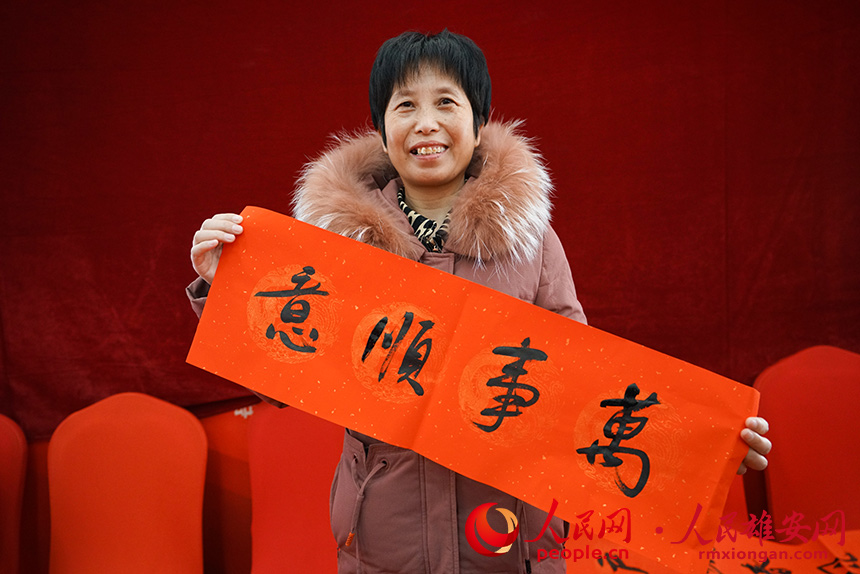 萬事順意
人民网·人民雄安网
people.cn rmxiongan.com